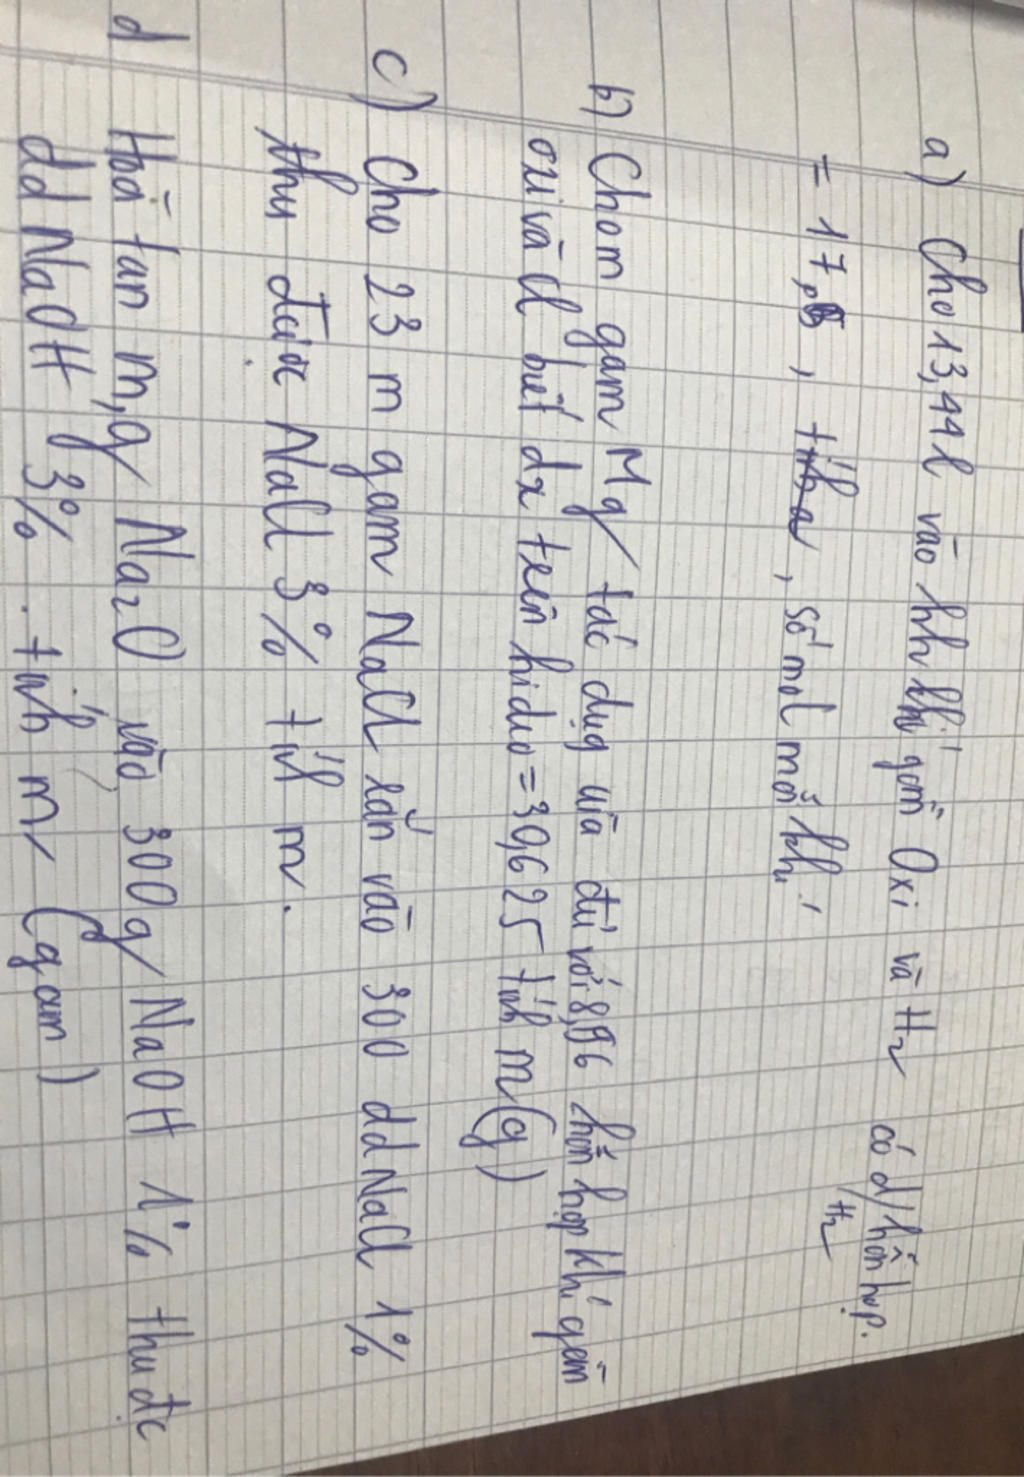 a) Cho 13,44l vào hh khí gồm Oxi và H₂ có d/hỗn hợp.
/H₂
= 17,6, tính, số mol mỗi khí
b) Cho m gam Mg tác dụg vừa đủ với 8,96 hỗn hợp khí gồm
oxi và cl biết dx trên hidro = 30,625 tính m (g)
c) Cho 23 m gam NaCl rắn vào 300 dd NaCl 1%
thu được NaCl 3% tính m.
d Hoà tan m,g Na₂O vào 300g NaOH 1% thu đc
dd NaOH 3%. tính m (gam)